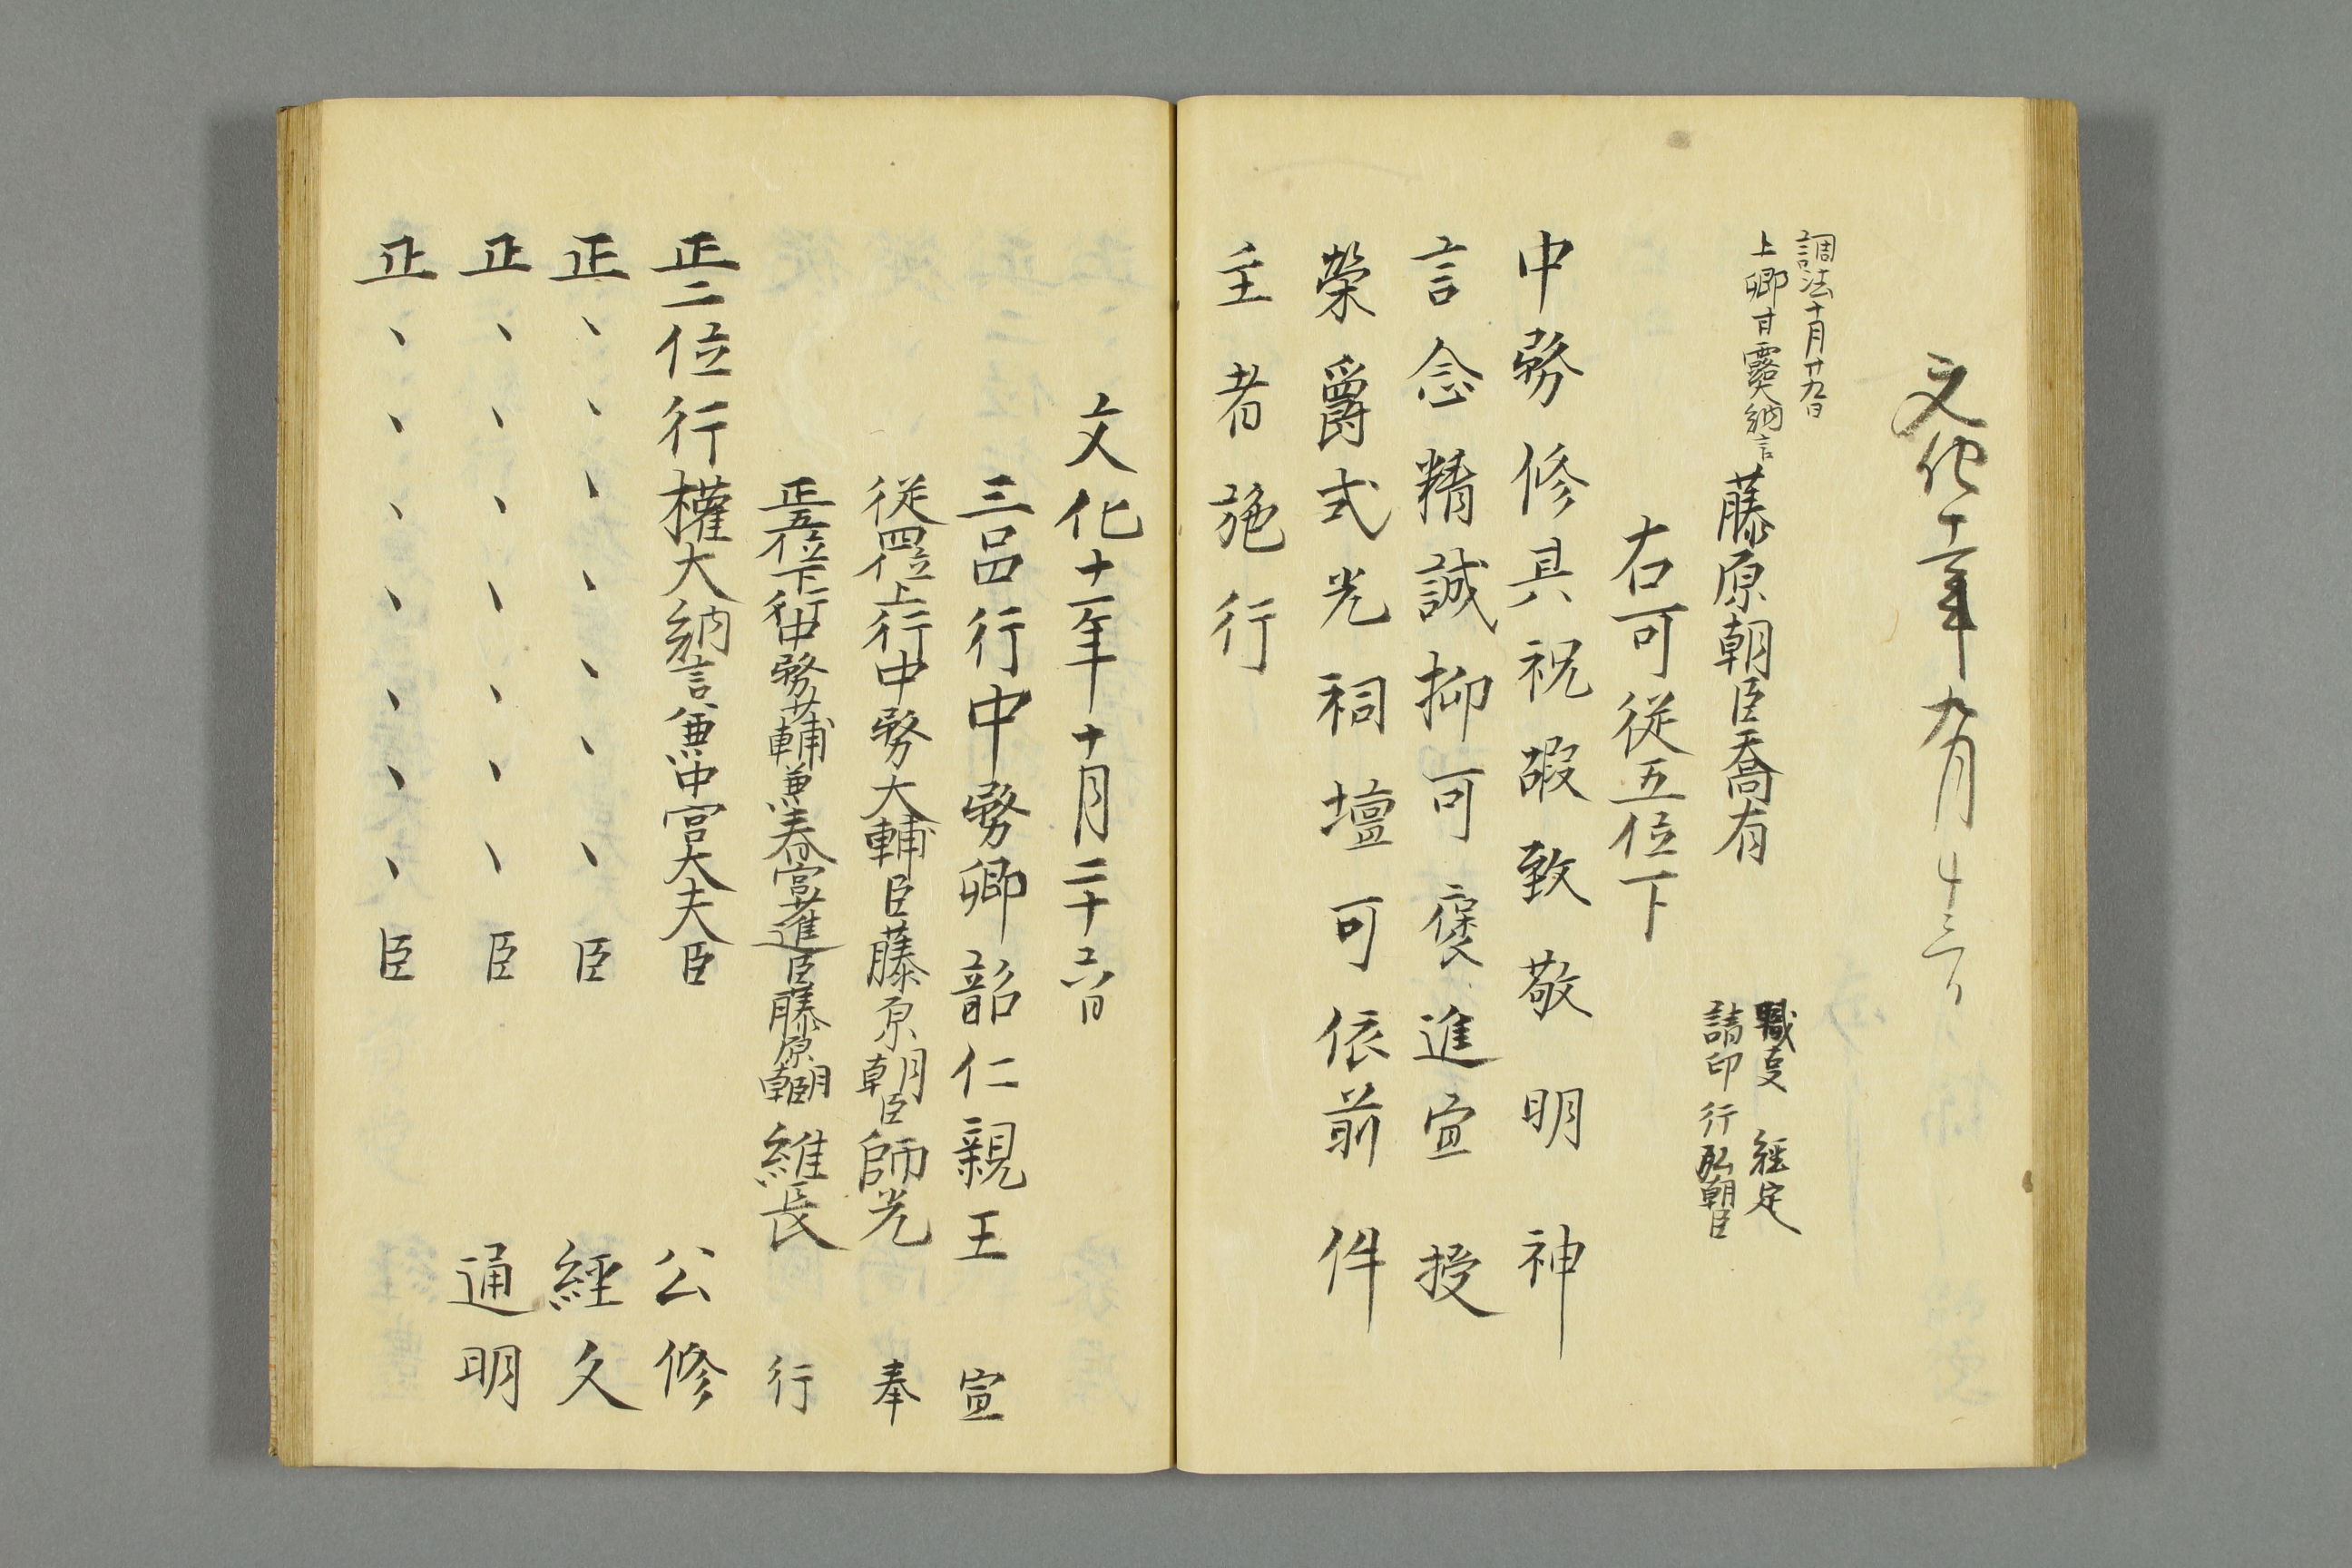 文化十一年九月廿三日
調法十月廿九日
上卿甘露大納言
藤原朝臣喬有
職事 経定
請印 行弘朝臣
右可従五位下
中務修具祝嘏致敬明神
言念精誠抑可褒進宜授
榮爵式光祠壇可依前件
主者施行
文化十一年十月二十六日
三品行中務卿韶仁親王 宣
従四位上行中務大輔臣藤原朝臣師光 奉
正五位下行中務少輔兼春宮少進臣藤原朝臣維長 行
正二位行權大納言兼中宮大夫臣 公修
正、、、、、、、臣 經久
正、、、、、、、臣 通明
正、、、、、、、臣